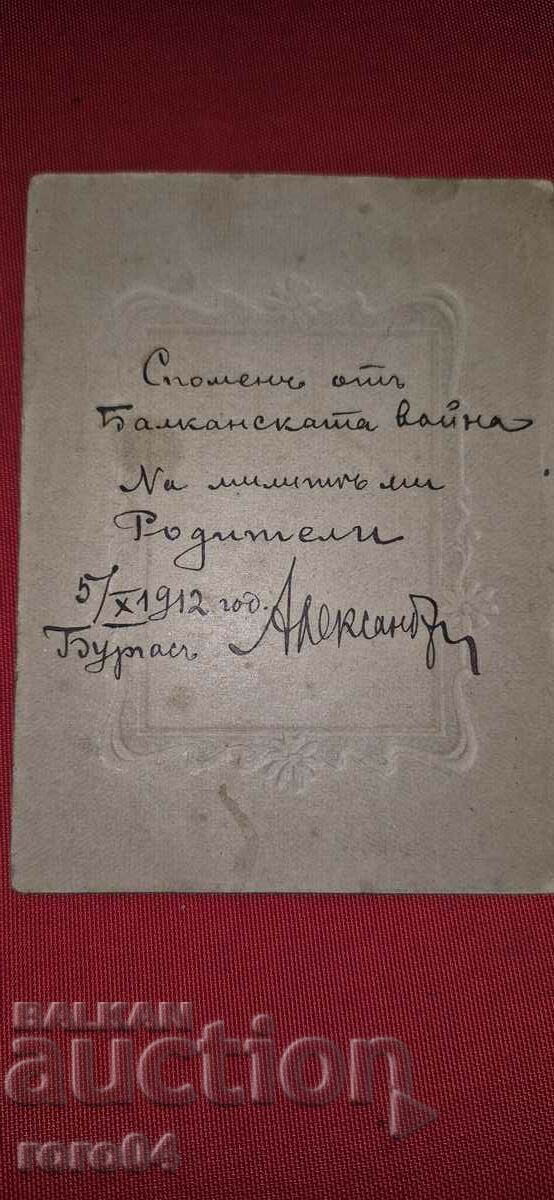 Споменъ отъ
Балканската война
На милитѣ ми
Родители
5/X 1912 год.
Бургасъ Александър
BALKAN
auction
roro04